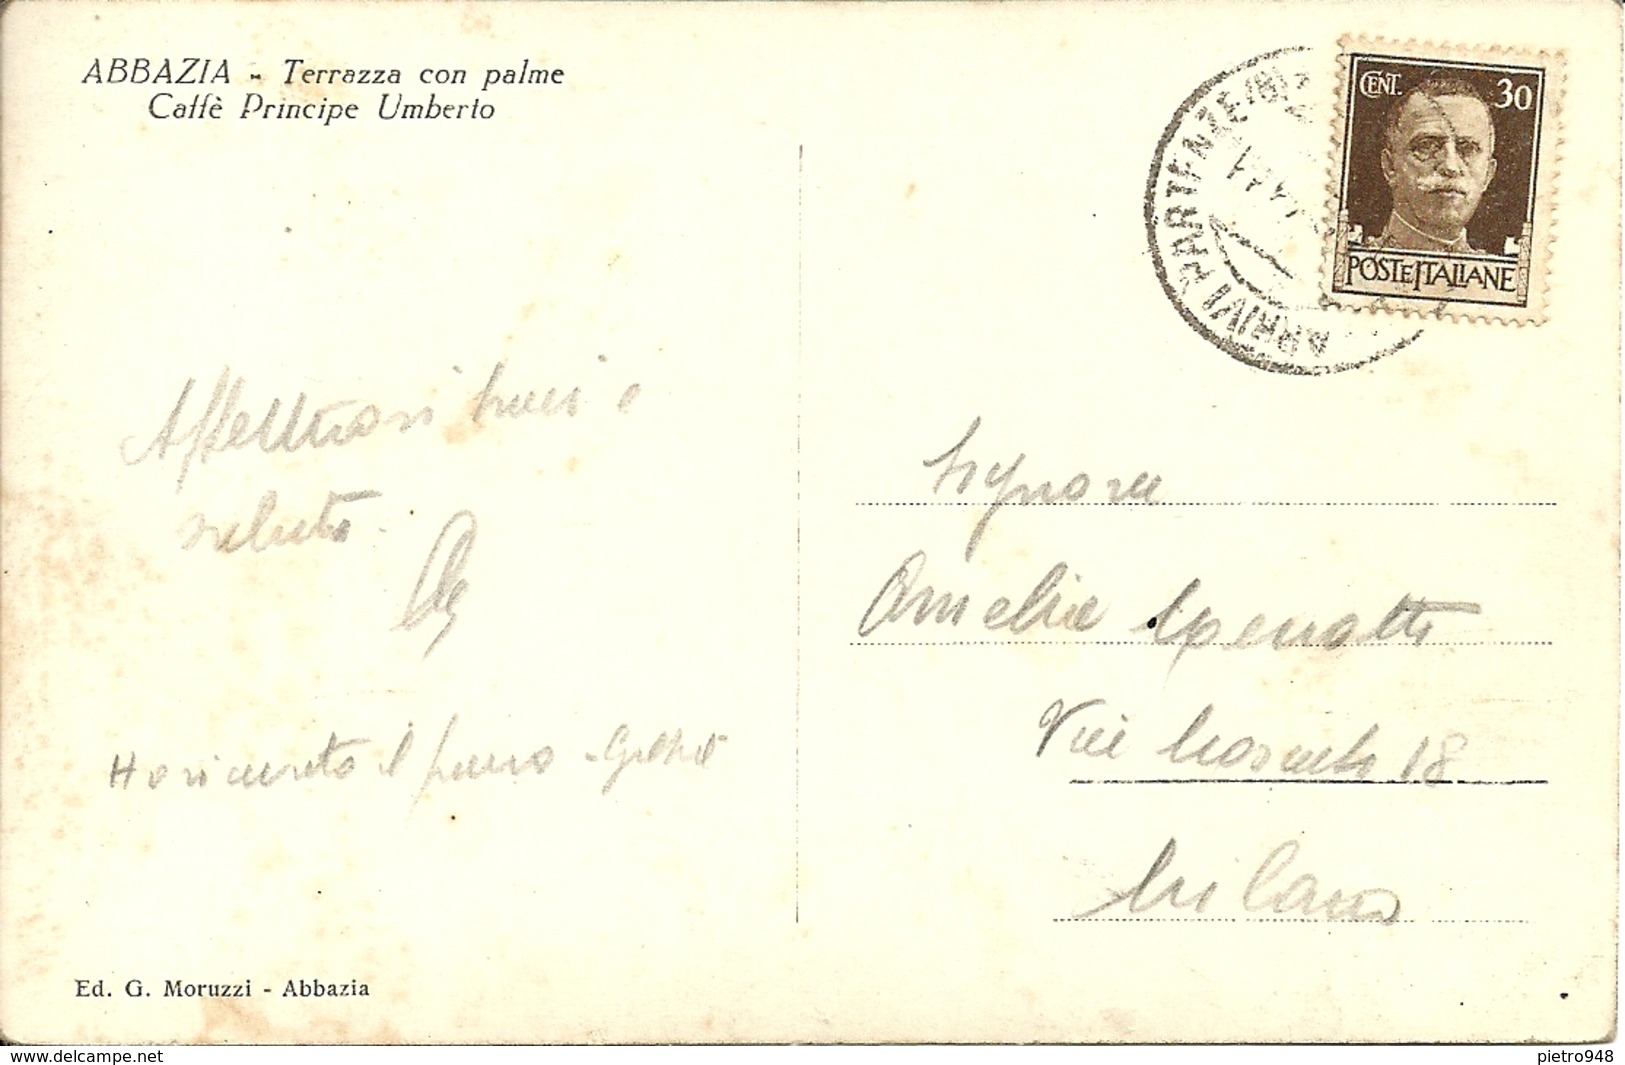 ABBAZIA - Terrazza con palme
Caffè Principe Umberto
CENT. 30
POSTE ITALIANE
ARRIVI PARTENZE (8)
Affettuosi baci e
saluti.
Ho ricevuto il pacco. Grazie
Signora
Amelia
Via 18
Milano
Ed. G. Moruzzi - Abbazia
www.delcampe.net
pietro948